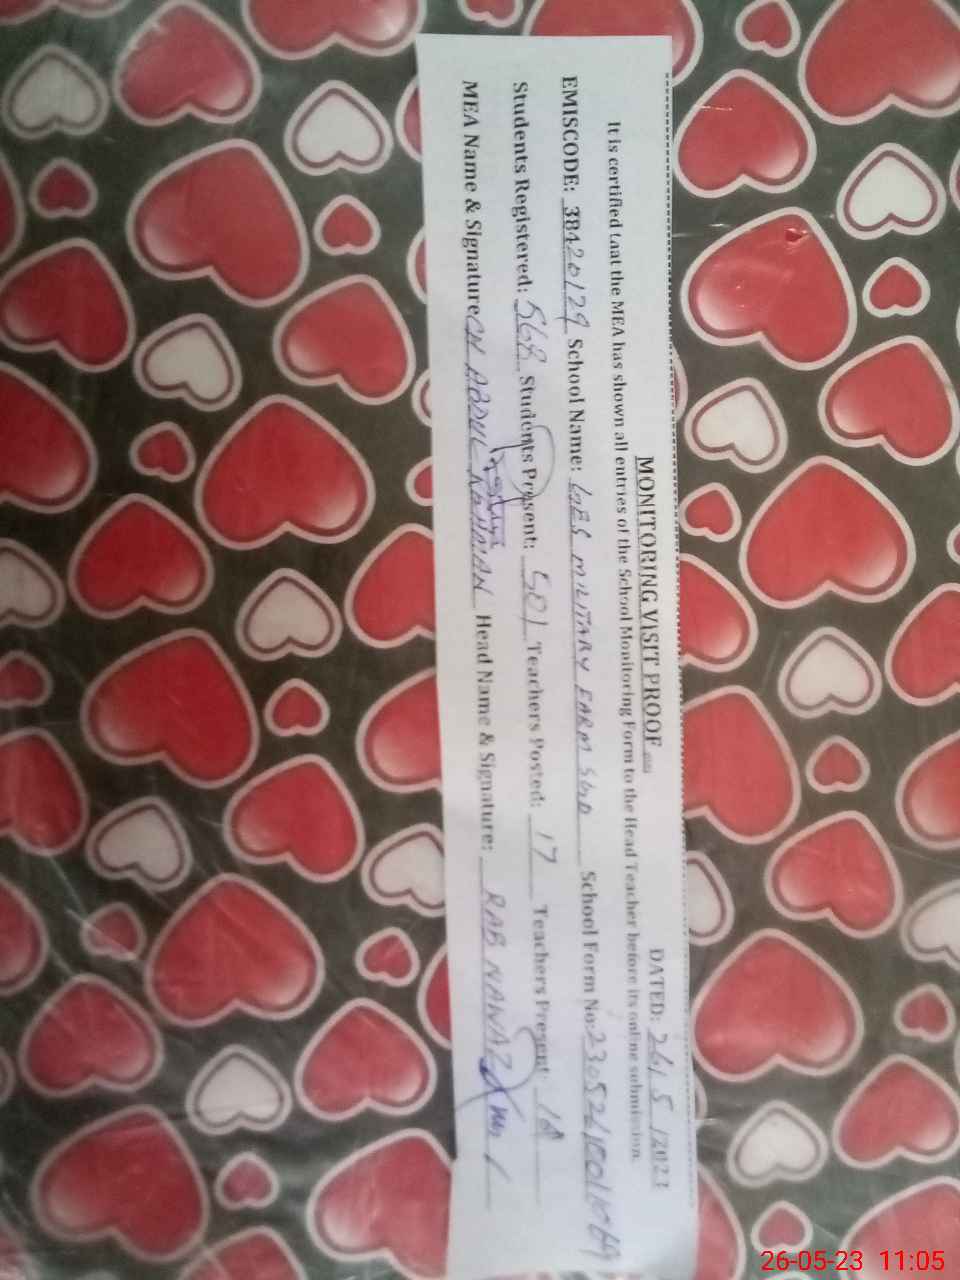 MONITORING VISIT PROOF
DATED: 26/5/2023
It is certified that the MEA has shown all entries of the School Monitoring Form to the Head Teacher before its online submission.
EMISCODE: 38420129 School Name: GES MILITARY FARM SGD School Form No:
Students Registered: 568 Students Present: 501 Teachers Posted: 17 Teachers Present:
MEA Name & Signature CH ABDUL RAHMAN Head Name & Signature: RAB NAWAZ
26-05-23 11:05